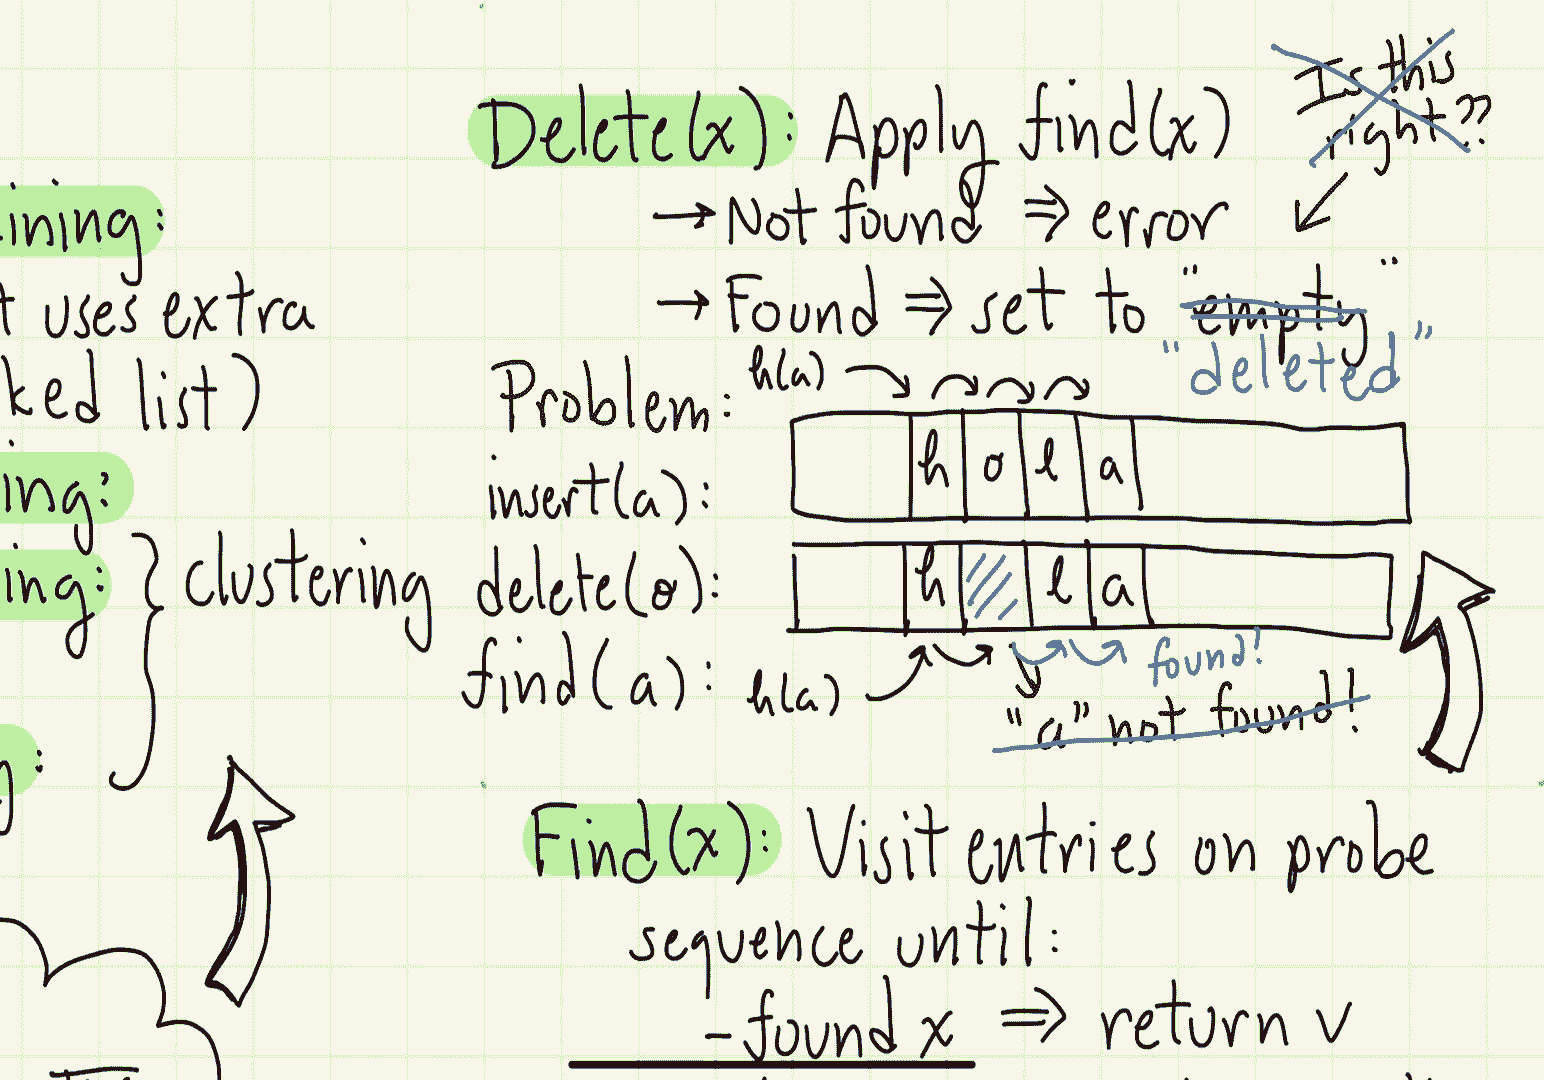 ining:
t uses extra
ked list)
ing:
ing:
clustering
g:
Delete(x): Apply find(x)
Is this
right??
→ Not found ⇒ error
→ Found ⇒ set to "empty"
"deleted"
Problem: h(a)
insert(a): h o l a
delete(o): h l a
find(a): h(a) found!
"a" not found!
Find(x): Visit entries on probe
sequence until:
- found x ⇒ return v